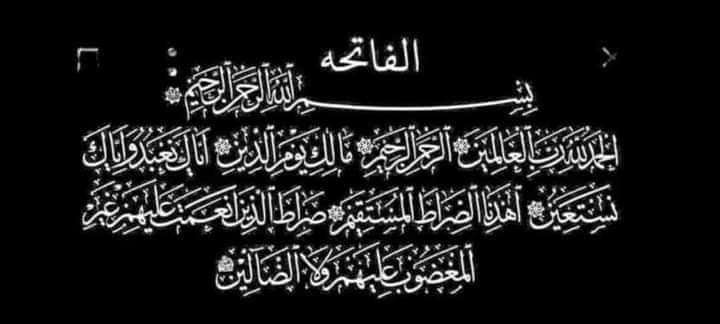 الفاتحه
بِسْمِ اللَّهِ الرَّحْمَنِ الرَّحِيمِ
الْحَمْدُ لِلَّهِ رَبِّ الْعَالَمِينَ الرَّحْمَنِ الرَّحِيمِ مَالِكِ يَوْمِ الدِّينِ إِيَّاكَ نَعْبُدُ وَإِيَّاكَ
نَسْتَعِينُ اهْدِنَا الصِّرَاطَ الْمُسْتَقِيمَ صِرَاطَ الَّذِينَ أَنْعَمْتَ عَلَيْهِمْ غَيْرِ
الْمَغْضُوبِ عَلَيْهِمْ وَلَا الضَّالِّينَ